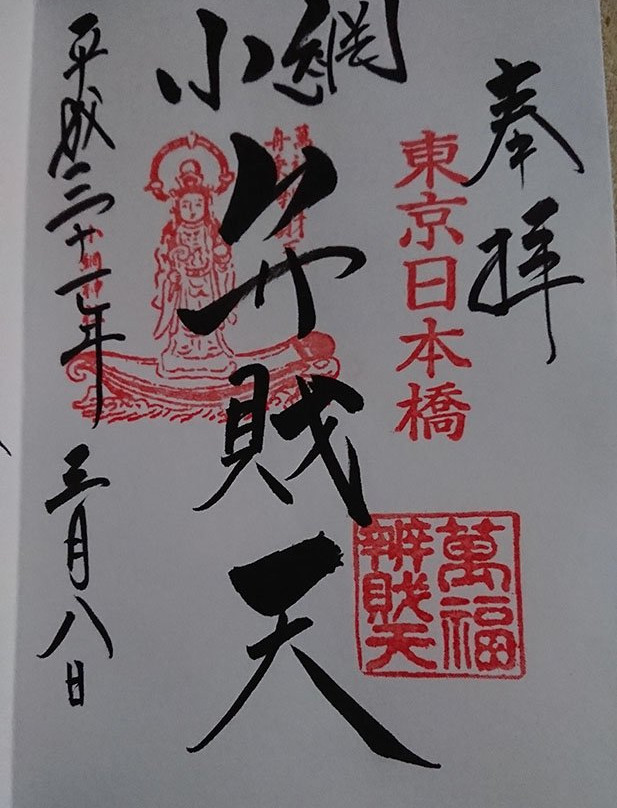 奉拝
東京日本橋
萬福
辨財天
小網
弁財天
平成三十一年 三月八日